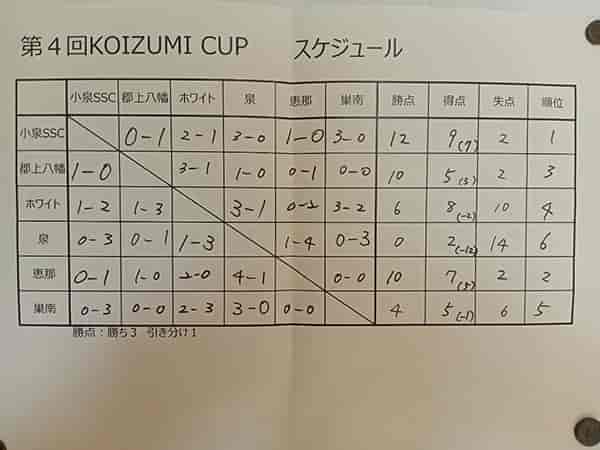 第４回KOIZUMI CUP　スケジュール
小泉SSC 郡上八幡 ホワイト 泉 恵那 巣南 勝点 得点 失点 順位
小泉SSC 0-1 2-1 3-0 1-0 3-0 12 9(7) 2 1
郡上八幡 1-0 3-1 1-0 0-1 0-0 10 5(3) 2 3
ホワイト 1-2 1-3 3-1 0-2 3-2 6 8(-2) 10 4
泉 0-3 0-1 1-3 1-4 0-3 0 2(-12) 14 6
恵那 0-1 1-0 2-0 4-1 0-0 10 7(5) 2 2
巣南 0-3 0-0 2-3 3-0 0-0 4 5(-1) 6 5
勝点：勝ち３ 引き分け１